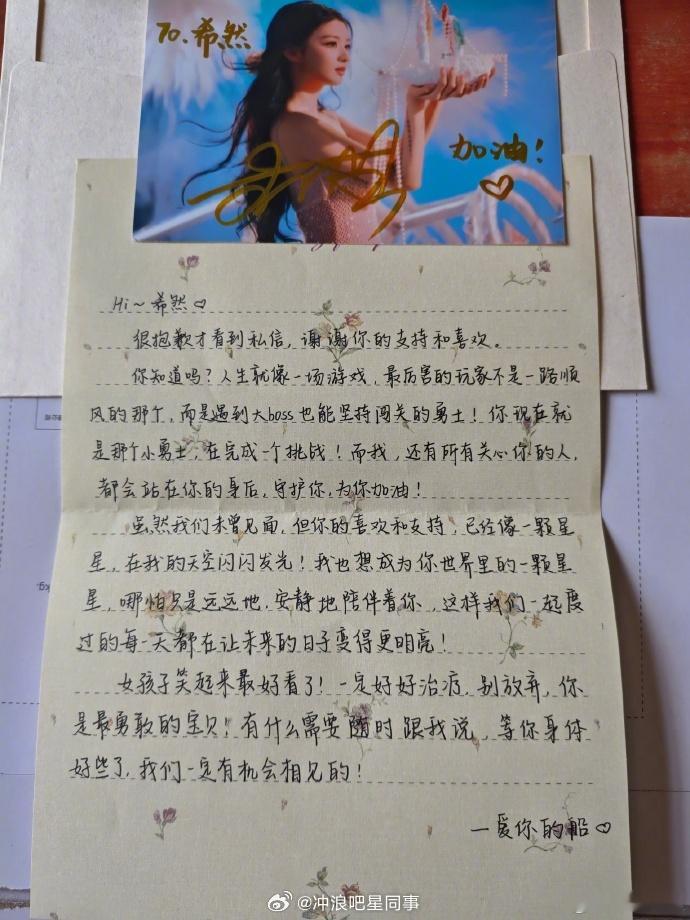 To.希然
加油!
♡
Hi~希然♡
很抱歉才看到私信,谢谢你的支持和喜欢。
你知道吗?人生就像一场游戏,最厉害的玩家不是一路顺
风的那个,而是遇到大boss也能坚持闯关的勇士!你现在就
是那个小勇士,在完成一个挑战!而我,还有所有关心你的人,
都会站在你的身后,守护你,为你加油!
虽然我们未曾见面,但你的喜欢和支持,已经像一颗星
星,在我的天空闪闪发光!我也想成为你世界里的一颗星
星,哪怕只是远远地,安静地陪伴着你,这样我们一起度
过的每一天都在让未来的日子变得更明亮!
女孩子笑起来最好看了!一定好好治疗,别放弃,你
是最勇敢的宝贝!有什么需要随时跟我说,等你身体
好些了,我们一定有机会相见的!
—爱你的船♡
kg.
@冲浪吧星同事